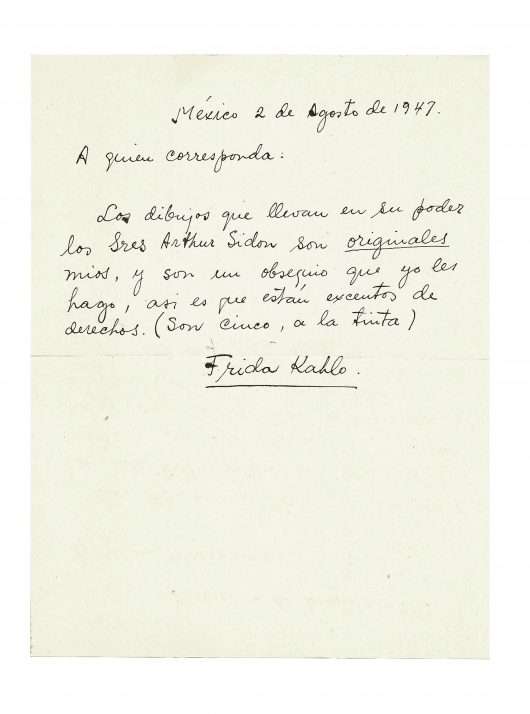 México 2 de Agosto de 1947.
A quien corresponda:
Los dibujos que llevan en su poder
los Sres Arthur Sidon son originales
mios, y son un obsequio que yo les
hago, asi es que están excentos de
derechos. (Son cinco, a la tinta)
Frida Kahlo.